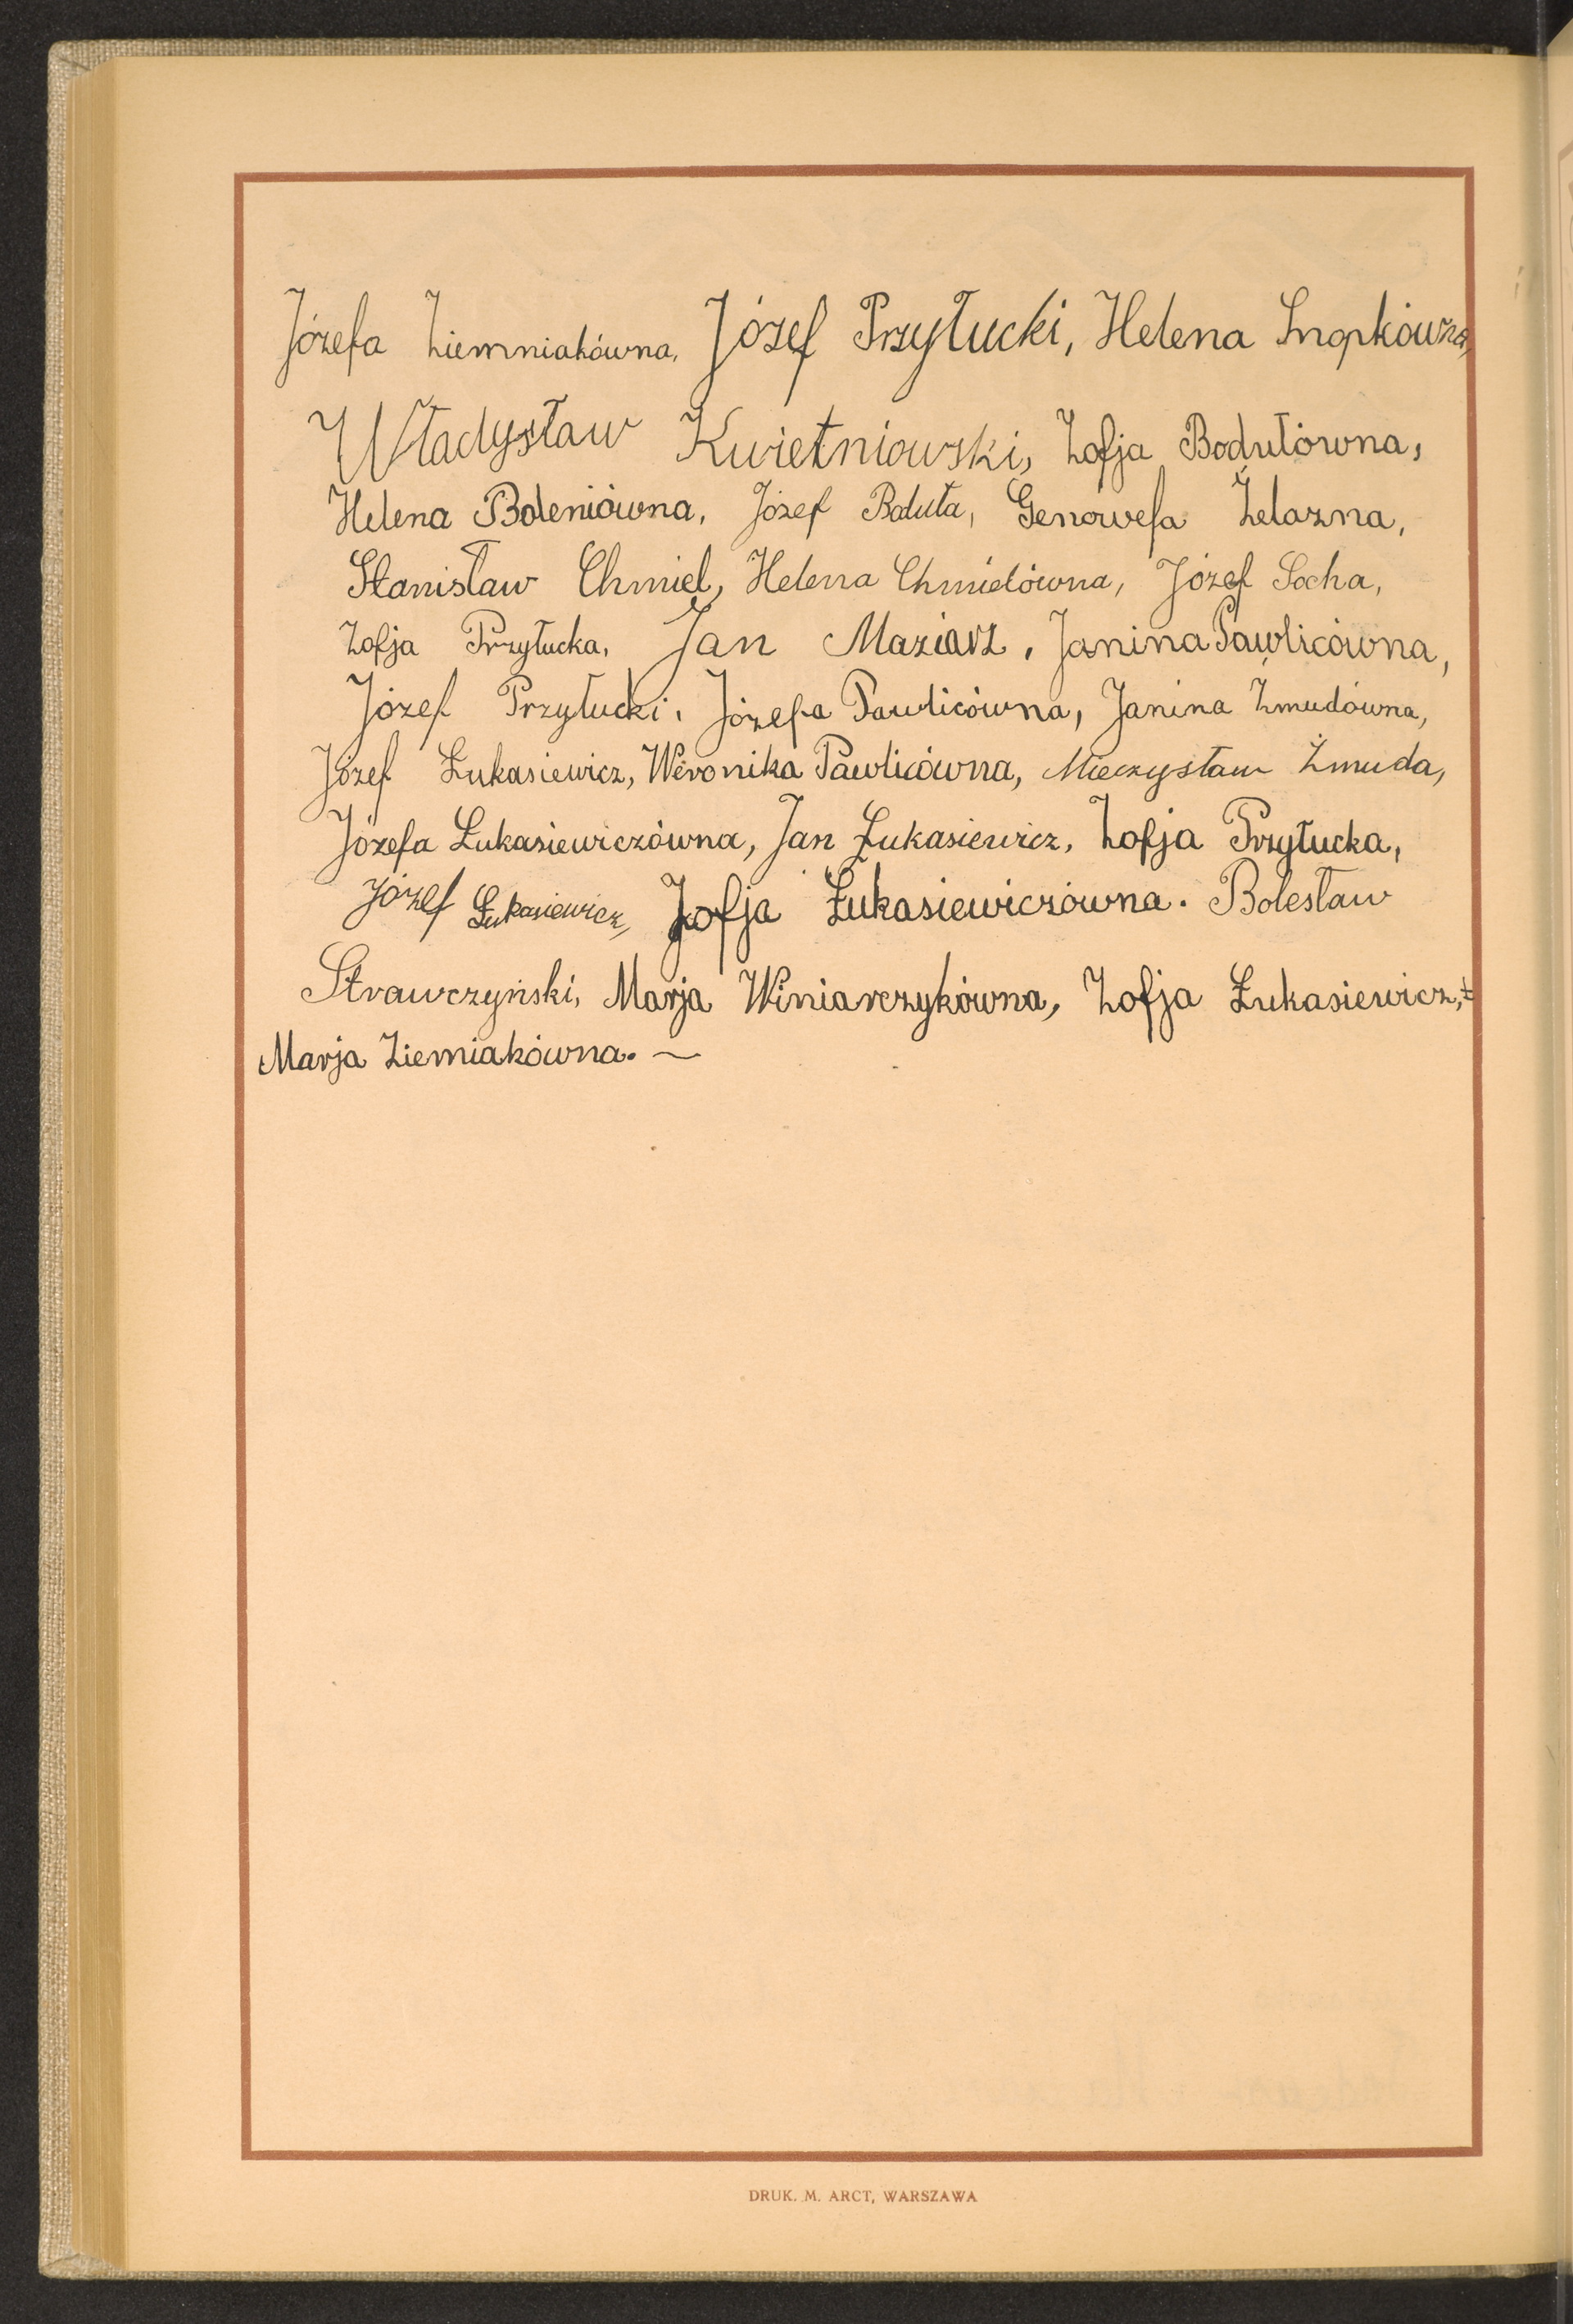 Józefa Ziemniakówna, Józef Przyłucki, Helena Snopkówna,
Władysław Kwietniowski, Zofja Bodułówna,
Helena Boleniówna, Józef Boduła, Genowefa Żelazna,
Stanisław Chmiel, Helena Chmielówna, Józef Socha,
Zofja Przyłucka, Jan Maziarz, Janina Pawlicówna,
Józef Przyłucki, Józefa Pawlicówna, Janina Żmudówna,
Józef Łukasiewicz, Weronika Pawlicówna, Mieczysław Żmuda,
Józefa Łukasiewiczówna, Jan Łukasiewicz, Zofja Przyłucka,
Józef Łukasiewicz, Zofja Łukasiewiczówna. Bolesław
Strawczyński, Marja Winiarczykówna, Zofja Łukasiewicz,
Marja Ziemiakówna. ~
DRUK. M. ARCT, WARSZAWA